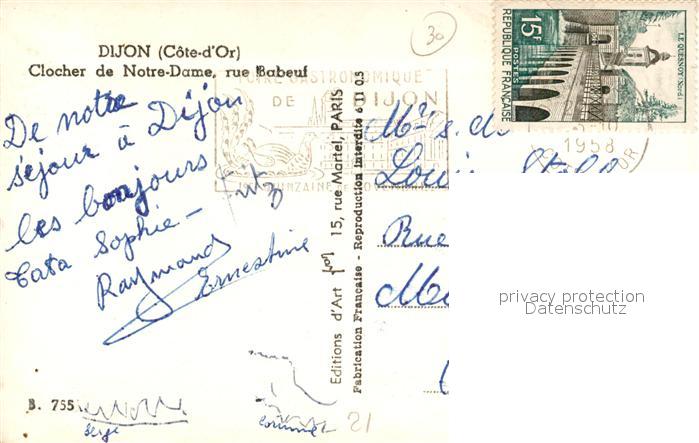 DIJON (Côte-d'Or)
Clocher de Notre-Dame, rue Babeuf
30
FOIRE GASTRONOMIQUE
DE DIJON
QUINZAINE DE NOVEMBRE
De notre
séjour à Dijon
les bonjours
Tata Sophie -
Raymond
Ernestine
Fritz
Serge
B. 755
21
Editions d'Art 15, rue Martel, PARIS
Fabrication Française - Reproduction Interdite 6 11 05
15F
POSTES
REPUBLIQUE FRANÇAISE
LE QUESNOY (Nord)
1958
Mr s. d
Loui
Rue
privacy protection
Datenschutz